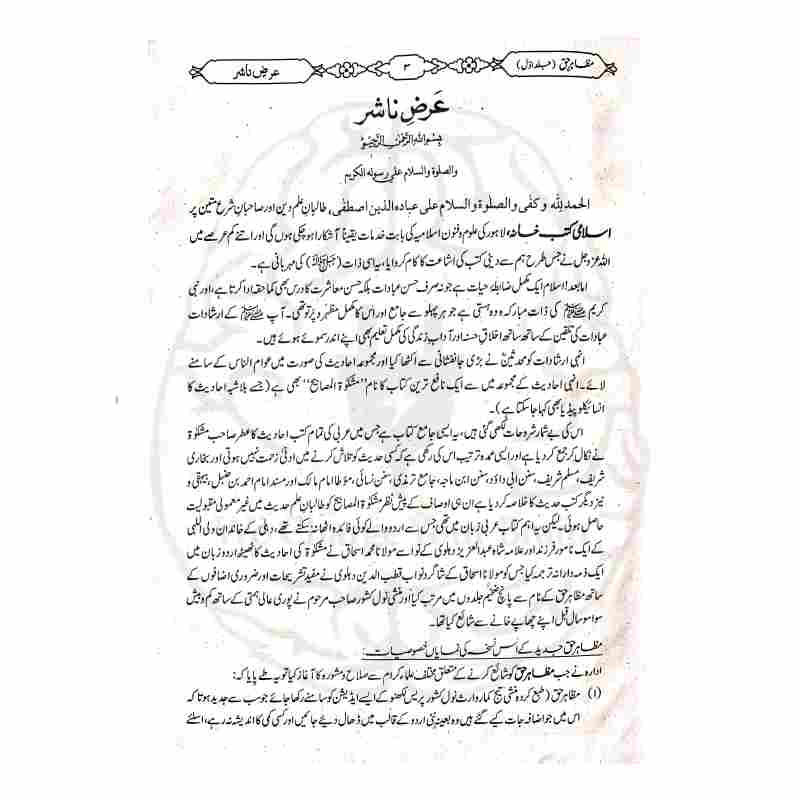 مظاہرحق (جلد اول)
۳
عرض ناشر
عَرضِ ناشر
بِسْمِ اللہِ الرَّحْمٰنِ الرَّحِیْمِ
والصلوة والسلام علی رسوله الكریم
الحمد للّٰہ وکفٰی والصلوٰۃ والسلام علی عبادہ الذین اصطفٰی، طالبانِ علم دین اور صاحبانِ شرع متین پر
اسلامی کتب خانہ، لاہور کی علوم و فنون اسلامیہ کی بابت خدمات یقیناً آشکارا ہوچکی ہوں گی اور اتنے کم عرصے میں
اللہ عزوجل نے جس طرح ہم سے دینی کتب کی اشاعت کا کام کروایا، یہ اسی ذات (ﷻ) کی مہربانی ہے۔
امابعد! اسلام ایک مکمل ضابطۂ حیات ہے جو نہ صرف حسن عبادات بلکہ حسن معاشرت کا درس بھی کما حقہ ادا کرتا ہے، اور نبی
کریم ﷺ کی ذات مبارکہ وہ ہستی ہے جو ہر پہلو سے جامع اور اس کا مکمل مظہر و پرتو تھی۔ آپ ﷺ کے ارشادات
عبادات کی تلقین کے ساتھ ساتھ اخلاق حسنہ اور آداب زندگی کی مکمل تعلیم بھی اپنے اندر سموئے ہوئے ہیں۔
انہی ارشادات کو محدثینؒ نے بڑی جانفشانی سے اکٹھا کیا اور مجموعہ احادیث کی صورت میں عوام الناس کے سامنے
لائے۔ انہی احادیث کے مجموعہ میں سے ایک نافع ترین کتاب کا نام ’’مشکوٰۃ المصابیح‘‘ بھی ہے (جسے بلاشبہ احادیث کا
انسائیکلوپیڈیا بھی کہا جاسکتا ہے)۔
اس کی بے شمار شروحات لکھی گئی ہیں، یہ ایسی جامع کتاب ہے جس میں عربی کی تمام کتب احادیث کا عطر صاحب مشکوٰۃ
نے نکال کر جمع کردیا ہے اور ایسی عمدہ ترتیب اس کی رکھی ہے کہ کسی حدیث کو تلاش کرنے میں ادنیٰ زحمت نہیں ہوتی اور بخاری
شریف، مسلم شریف، سنن ابی داؤد، سنن ابن ماجہ، جامع ترمذی، سنن نسائی، مؤطا امام مالک اور مسند امام احمد بن حنبل، بیہقی و
نیز دیگر کتب حدیث کا خلاصہ کردیا ہے ان ہی اوصاف کے پیش نظر مشکوٰۃ المصابیح کو طالبانِ علم حدیث میں غیر معمولی مقبولیت
حاصل ہوئی۔ لیکن یہ اہم کتاب عربی زبان میں تھی جس سے اردو والے کوئی فائدہ اٹھا نہ سکتے تھے، دہلی کے خاندان ولی اللہی
کے ایک نامور فرزند اور علامہ شاہ عبدالعزیز دہلوی کے نواسے مولانا محمد اسحاق نے مشکوٰۃ کی احادیث کا ٹھیٹھ اردو زبان میں
ایک ذمہ دارانہ ترجمہ کیا جس کو مولانا اسحاق کے شاگرد نواب قطب الدین دہلوی نے مفید تشریحات اور ضروری اضافوں کے
ساتھ مظاہرحق کے نام سے پانچ ضخیم جلدوں میں مرتب کیا اور منشی نول کشور صاحب مرحوم نے پوری عالی ہمتی کے ساتھ کم و بیش
سوا سو سال قبل اپنے چھاپے خانے سے شائع کیا تھا۔
مظاہرحق جدید کے اس نسخہ کی نمایاں خصوصیات:
ادارہ نے جب مظاہرحق کو شائع کرنے کے متعلق مختلف علماء کرام سے صلاح و مشورہ کا آغاز کیا تو یہ طے پایا کہ:
(۱) مظاہرحق (طبع کردہ منشی تیج کمار وارث نول کشور پریس لکھنو کے ایسے ایڈیشن کو سامنے رکھا جائے جو سب سے جدید ہو تا کہ
اس میں جو اضافہ جات کیے گئے ہیں وہ بعینہ نئی اردو کے قالب میں ڈھال دیئے جائیں اور کسی کمی کا اندیشہ نہ رہے، اسلئے